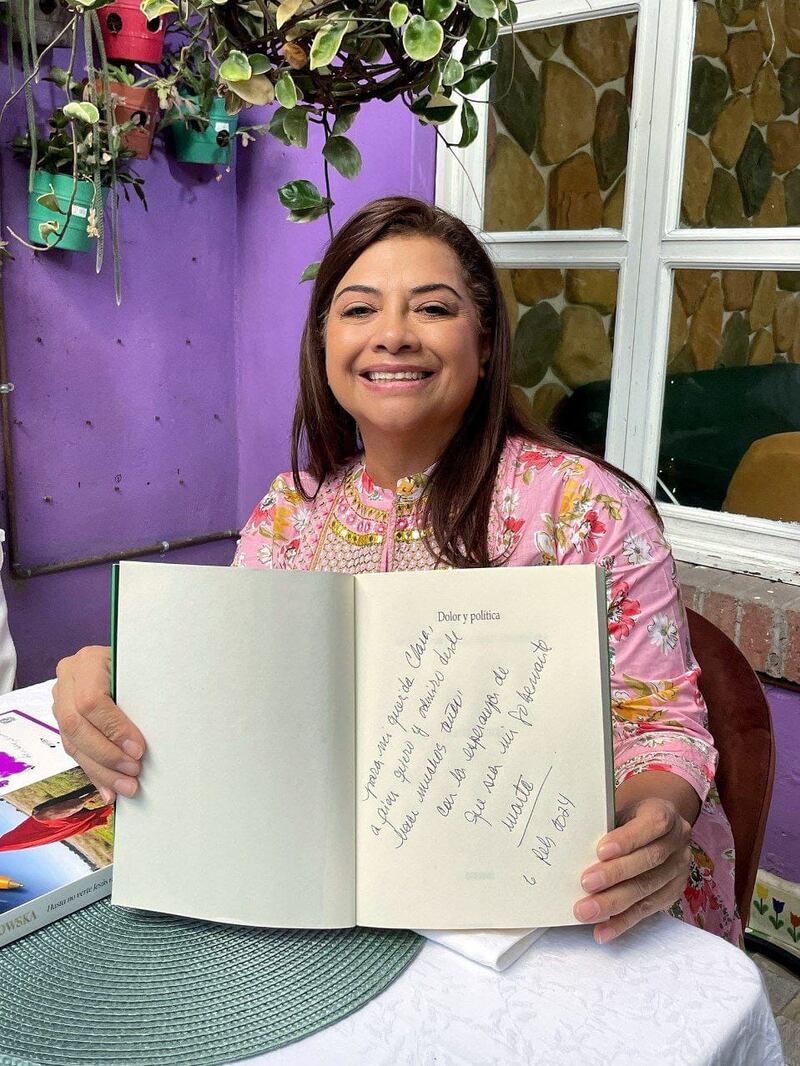 Dolor y política
para mi querida Clara,
a quien quiero y admiro desde
hace muchos años.
con la esperanza de
que sea mi gobernante
Marta
6 Feb 2024
OWSKA
Hasta no verte Jesús